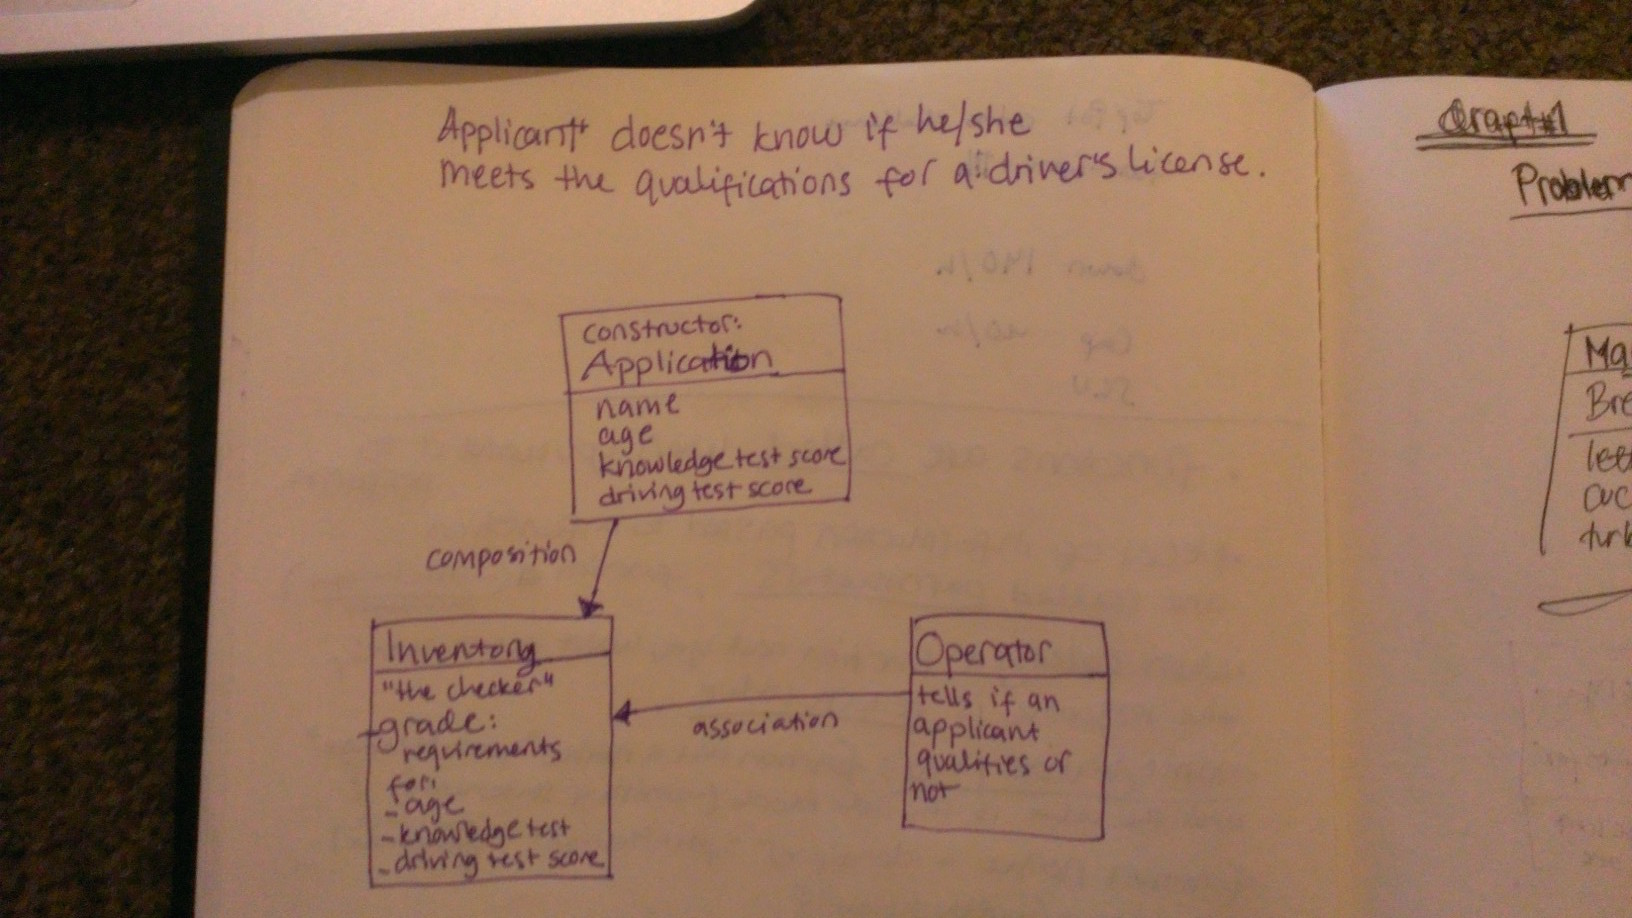 Applicant doesn't know if he/she
meets the qualifications for a driver's license.
constructor:
Application
name
age
knowledge test score
driving test score
composition
Inventory
"the checker"
-grade:
requirements
for:
- age
- knowledge test
- driving test score
association
Operator
tells if an
applicant
qualifies or
not
Draft #1
Problem
Ma
Bre